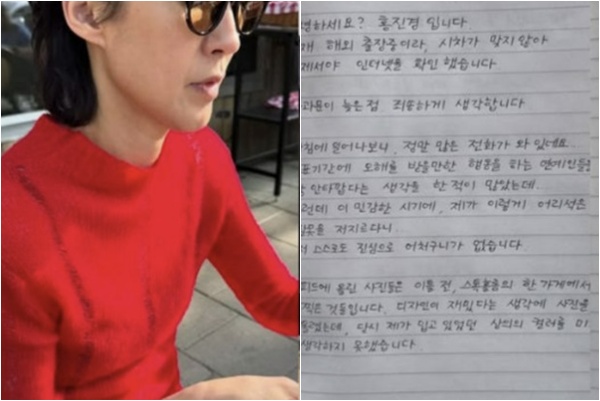 하세요? 홍진경 입니다
해외 출장중이라, 시차가 맞지 않아
제서야 인터넷을 확인했습니다.
과문이 늦은점 죄송하게 생각합니다
침에 일어나보니, 정말 많은 전화가 와 있네요..
표기간에 오해를 받을만한 행동을 하는 연예인들을
안타깝다는 생각을 한 적이 많았는데..
런데 이 민감한 시기에, 제가 이렇게 어리석은
못을 저지르다니.
스스로도 진심으로 어처구니가 없습니다.
피드에 올린 사진들은 이틀 전, 스톡홀름의 한 가게에서
찍은 것들입니다. 디자인이 재밌다는 생각에 사진을
올렸는데, 당시 제가 입고 있었던 상의의 컬러를 미
생각하지 못했습니다.